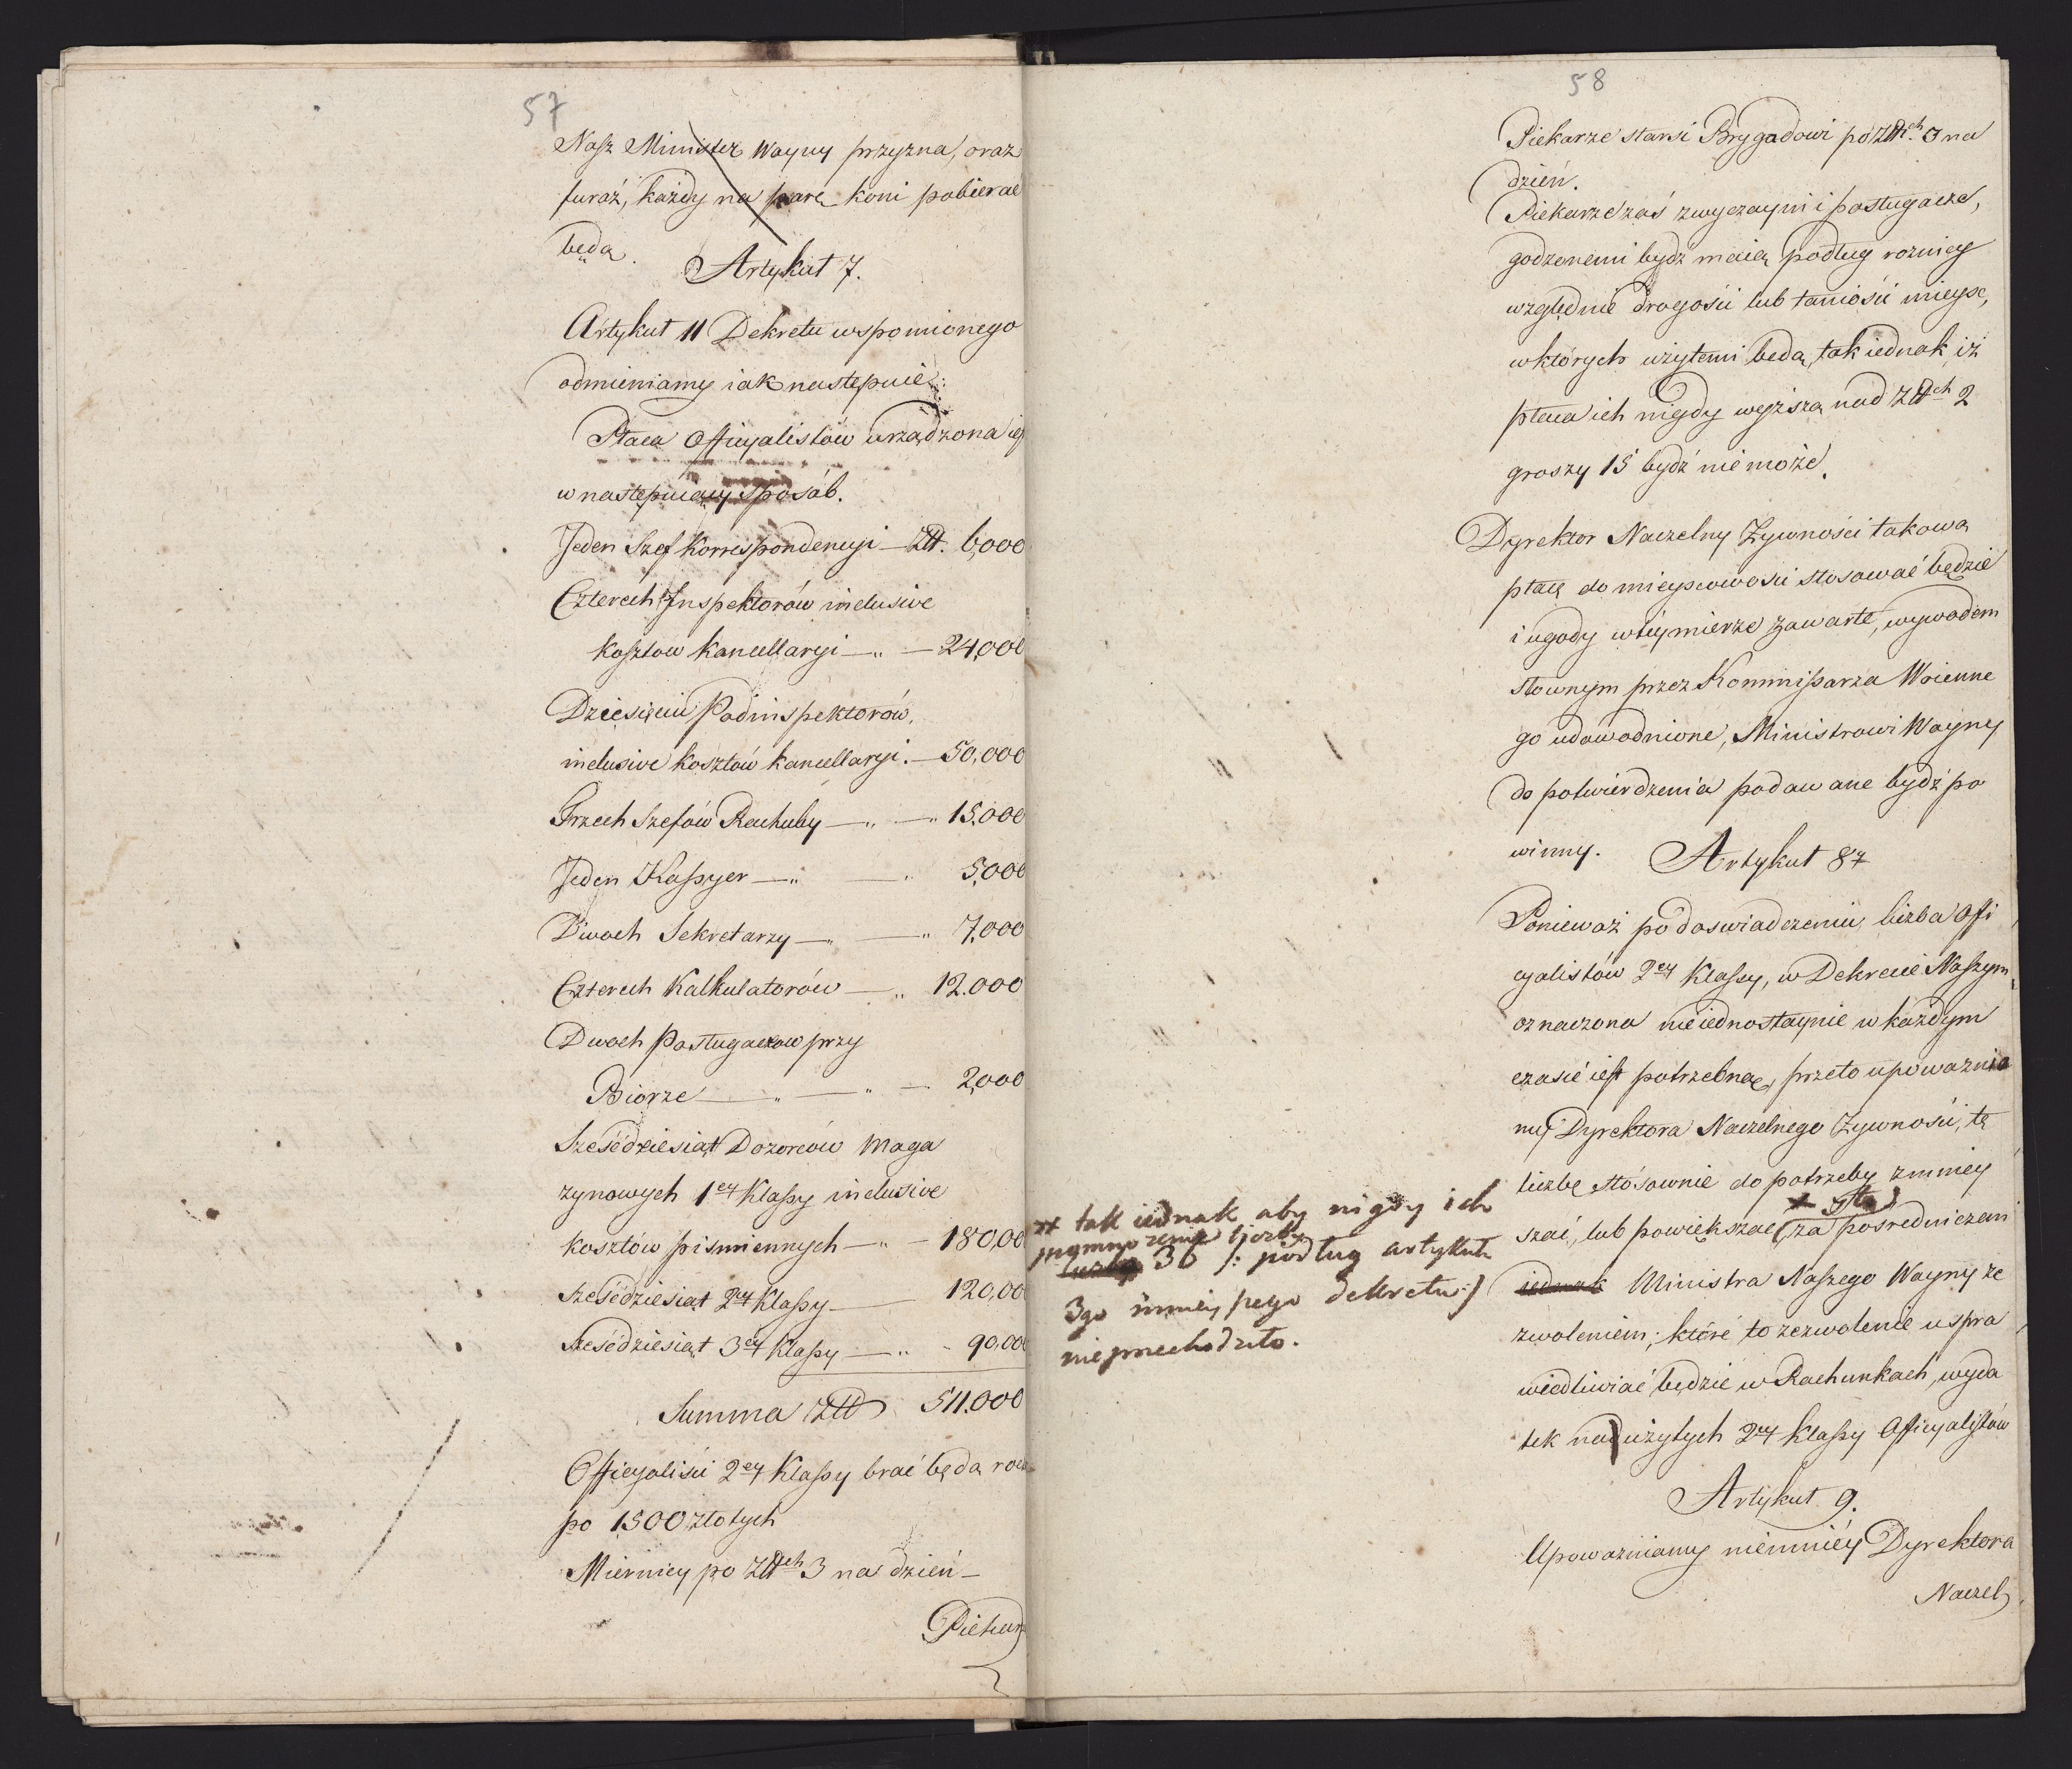 57
Nasz Minister Woyny przyzna, oraz
furaż, każdy na parę koni pobierać
będą.
Artykuł 7.
Artykuł 11 Dekretu wspomionego
odmieniamy iak następuie:
Płaca Officyalistów urządzona iest
w następuiący sposób.
Jeden Szef Korrespondencyi — Złł. 6,000
Czterech Inspektorów inclusive
kosztow kancellaryi — „ — 24,000
Dziesięciu Podinspektorów,
inclusive kosztów kancellaryi. — 50,000
Trzech Szefów Rachuby — „ — „ 15.000
Jeden Kassyer — „ — „ 5,000
Dwoch Sekretarzy — „ — „ 7,000
Czterech Kalkulatorów — „ 12.000
Dwoch Posługaczow przy
Biórze — „ — „ — 2,000
Sześćdziesiąt Dozorców Maga
zynowych 1ey Klassy inclusive
kosztów pismiennych — „ — 180,00
Sześćdziesiąt 2ey Klassy — 120,00
Sześćdziesiąt 3ey Klassy — „ - 90,000
Summa Złł 511.000
Officyaliści 2ey Klassy brać będą
po 1500 złotych
Miernicy po Złłch 3 na dzień —
Piekar
58
Piekarze starsi Brygadowi po Złłch. 3 na
dzień.
Piekarze zaś zwyczayni i posługacze,
godzonemi bydź maią podług rozniey
względnie drogości lub taniości mieysc,
w których użytemi będą, tak iednak, iż
płaca ich nigdy wyższą nad Złłch 2
groszy 15 bydź nie może.
Dyrektor Naczelny Żywności takową
płacę do mieyscowości stosować będzie
i ugody w tey mierze zawarte, wywodem
słownym przez Kommissarza Woienne
go udowodnione, Ministrowi Woyny
do potwierdzenia podawane bydź po
winny.
Artykuł 8y
Ponieważ po doswiadczeniu, liczba Ofi
cyalistów 2ey Klassy, w Dekrecie Naszym
oznaczona nie iednostaynie w każdym
czasie iest potrzebną, przeto upoważnia
my Dyrektora Naczelnego Żywności, tę
liczbę stósownie do potrzeby zmniey
szać, lub powiększać, za posredniczem
iednak Ministra Naszego Woyny ze
zwoleniem; które to zezwolenie uspra
wiedliwiać będzie w Rachunkach, wyda
tek nad użytych 2ey Klassy Officyalistów
tak iednak aby nigdy ich
pomnożenie liczby
36 /: podług artykułu
3go ninieyszego dekretu :/
nieprzechodziło.
Artykuł 9.
Upoważniamy niemniéy Dyrektora
Naczel